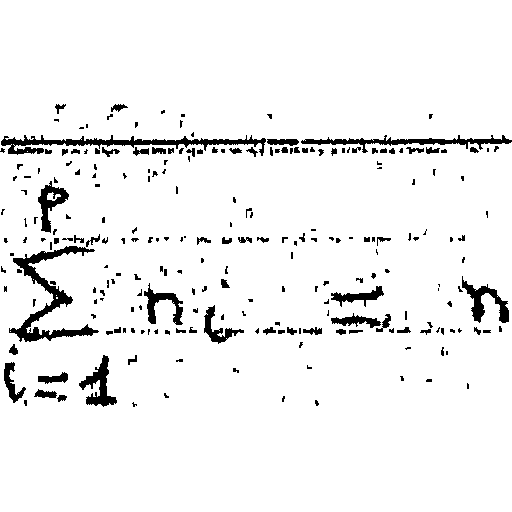 \sum_{i=1}^{p} n_i = n